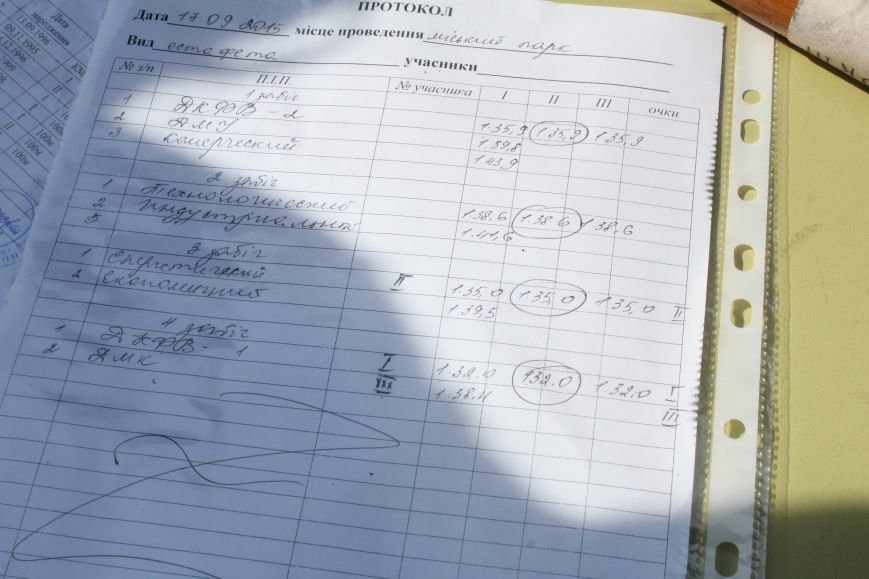 ПРОТОКОЛ
Дата 17.09.2015 місце проведення міський парк
Вид естафета учасники
№ з/п П.І.П. № учасника I II III очки
1 забіг
1 ДКФВ - 2 1.35,9 1.35,9 1.35,9
2 ДМУ 1.39,8
3 комерческий 1.43,9
2 забіг
1 Технологический 1.38,6 1.38,6 1.38,6
2 Индустриальный 1.41,6
3
3 забіг
1 енергетический II 1.35,0 1.35,0 1.35,0 II
2 економичний 1.39,5
4 забіг
1 ДКФВ - 1 I 1.32.0 1.32.0 1.32.0 I
2 ДМК 1.38.4 III
Дата
народження
13.09.1996
09.11.1995
100м
100м
100м